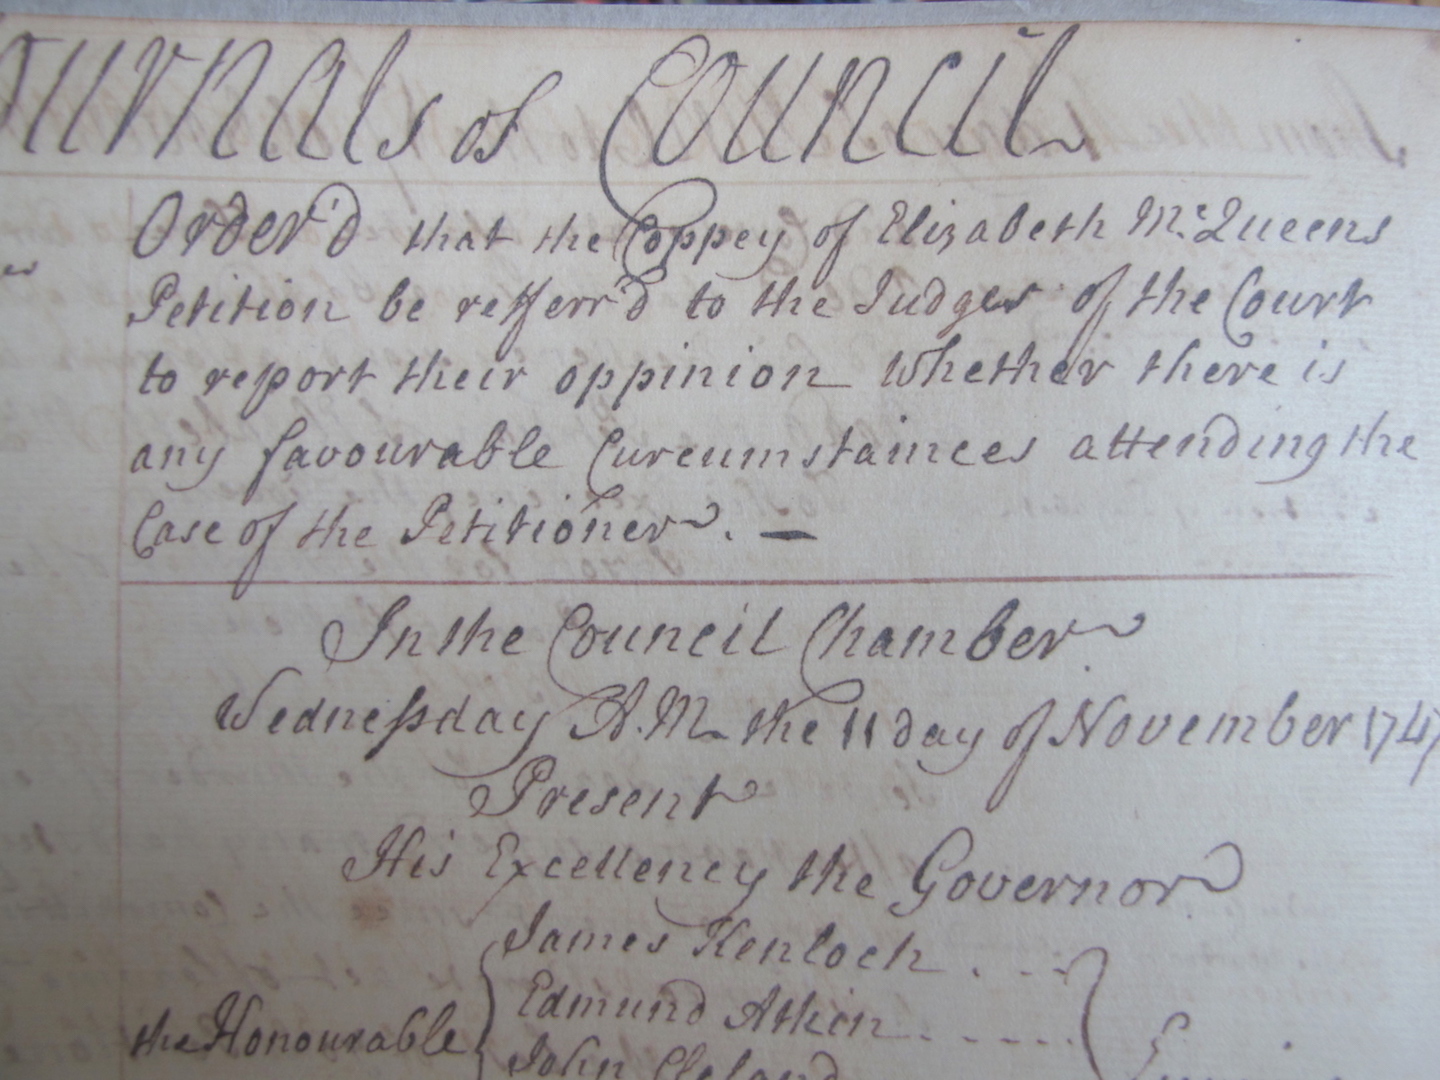 ournals of Council
Order'd that the Coppey of Elizabeth Mc.Queens
Petition be refferr'd to the Judges of the Court
to report their oppinion Whether there is
any favourable Curcumstainces attending the
Case of the Petitioner. —
In the Council Chamber
Wednesday A.M. the 11 day of November 1747
Present
His Excellency the Governor
James Kenloch . . .
Edmund Atkin . . . . .
the Honourable
John Cleland